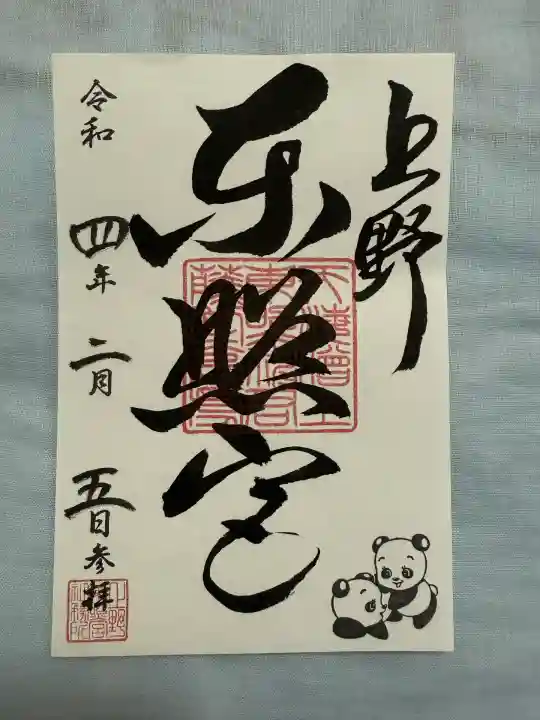 上野
東照宮
令和四年二月五日参拝